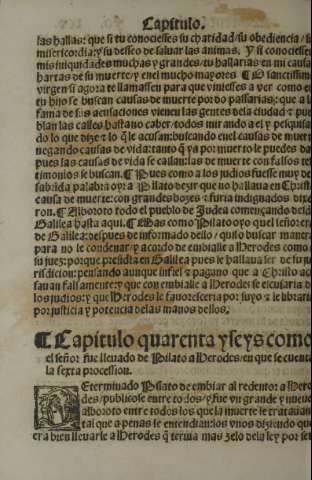 Capitulo.
las hallas: que si tu conociesses su charidad/su obediencia/
misericordia: y su desseo de saluar las animas. Y si conociesse
mis iniquidades muchas y grandes/tu hallarias en mi causas
hartas de su muerte/y en el mucho mayores ¶ O sanctissima
virgen si agora te llamassen para que viniesses a ver como en
tu hijo se buscan causas de muerte por do passarias: que a la
fama de sus acusaciones vienen las gentes de la ciudad: y pue
blan las calles hasta no caber. todos mirando a el y pesquisan
do lo que dize y lo que le acusan: buscando en el causas de muerte
negando causas de vida: tanto que ya por muerto le puedes
pues las causas de vida se callan: las de muerte con falsos tes
timonios se buscan. ¶ Pues como a los judios fuesse muy de
sabrida palabra oyr a Pilato dezir que no hallaua en Christo
causa de muerte: con grandes bozes y furia indignados dixe
ron. ¶ Alboroto todo el pueblo de Judea començando desde
Galilea hasta aqui. ¶ Mas como Pilato oyo quel señor era
de Galilea: despues de informado dello/quiso buscar manera
para no le condenar: y acordo de embialle a Herodes como a
su juez: porque presidia en Galilea pues le hallaua ser de su ju
risdicion: pensando aunque infiel y pagano que a Christo acu
sauan falsamente: y que con embialle a Herodes se escusaria de
los judios: y que Herodes le fauoresceria por suyo y le libraria
por justicia y potencia de las manos dellos.
¶ Capitulo quarenta y seys como
el señor fue lleuado de Pilato a Herodes/en que se cuenta
la sexta procession.
DEterminado Pilato de embiar al redentor a Hero
des/publicose entre todos/y fue vn grande y nueuo
alboroto entre todos los que la muerte le tratauan
tal que a penas se entendian: los vnos diziendo que
era bien lleuarle a Herodes que ternia mas zelo de la ley por ser